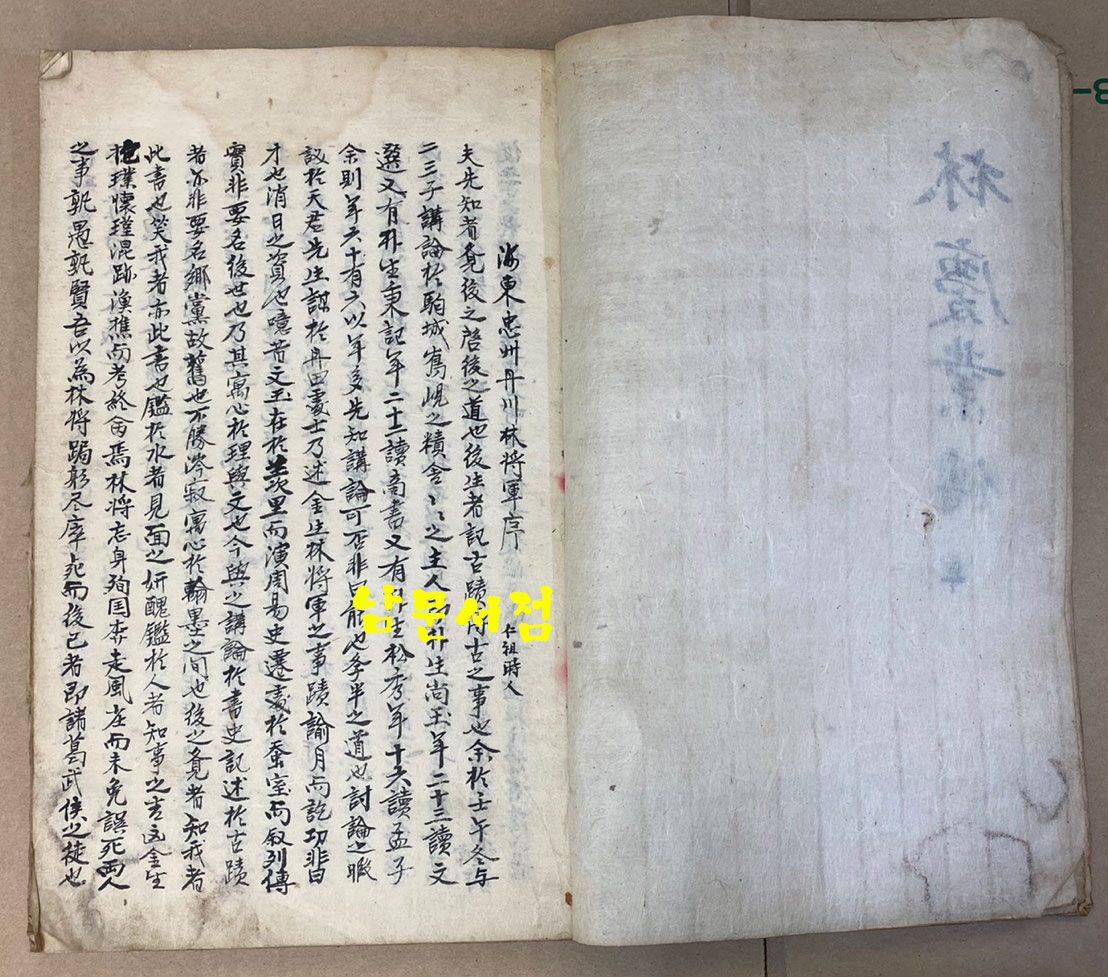 林慶業傳
海東忠州丹川林将軍序 仁祖時人
夫先知者覺後之啓後之道也後生者記古蹟古之事也余於壬午冬与
二三子講論於駒城嵩峴之積舍〻之主人朴生尚玉年二十三讀文
選又有朴生秉記年二十二讀商書又有朴生松秀年十六讀孟子
余則年六十有六以年多先知講論可否非曰能也斈半之道也討論之暇
設於天君先生謀於丹田處士乃述金生林将軍之事蹟諭月而訖功非曰
才也消日之資也噫昔文王在於羑里而演周易史遷處於蚕室而叙列傳
實非要名後世也乃其寓心於理與文也今與之講論於書史記述於古蹟
者亦非要名鄉黨故舊也不勝涔寂寓心於翰墨之间也後之覓者知我者
此書也笑我者亦此書也鑑於水者見面之妍醜鑑於人者知事之吉凶金生
抱璞懷瑾混跡漁樵而考終命焉林将忘身殉国奔走風尘而未免誤死兩人
之事孰愚孰賢吾以為林将跼躬尽瘁死而後已者即諸葛武侯之徒也
남문서점